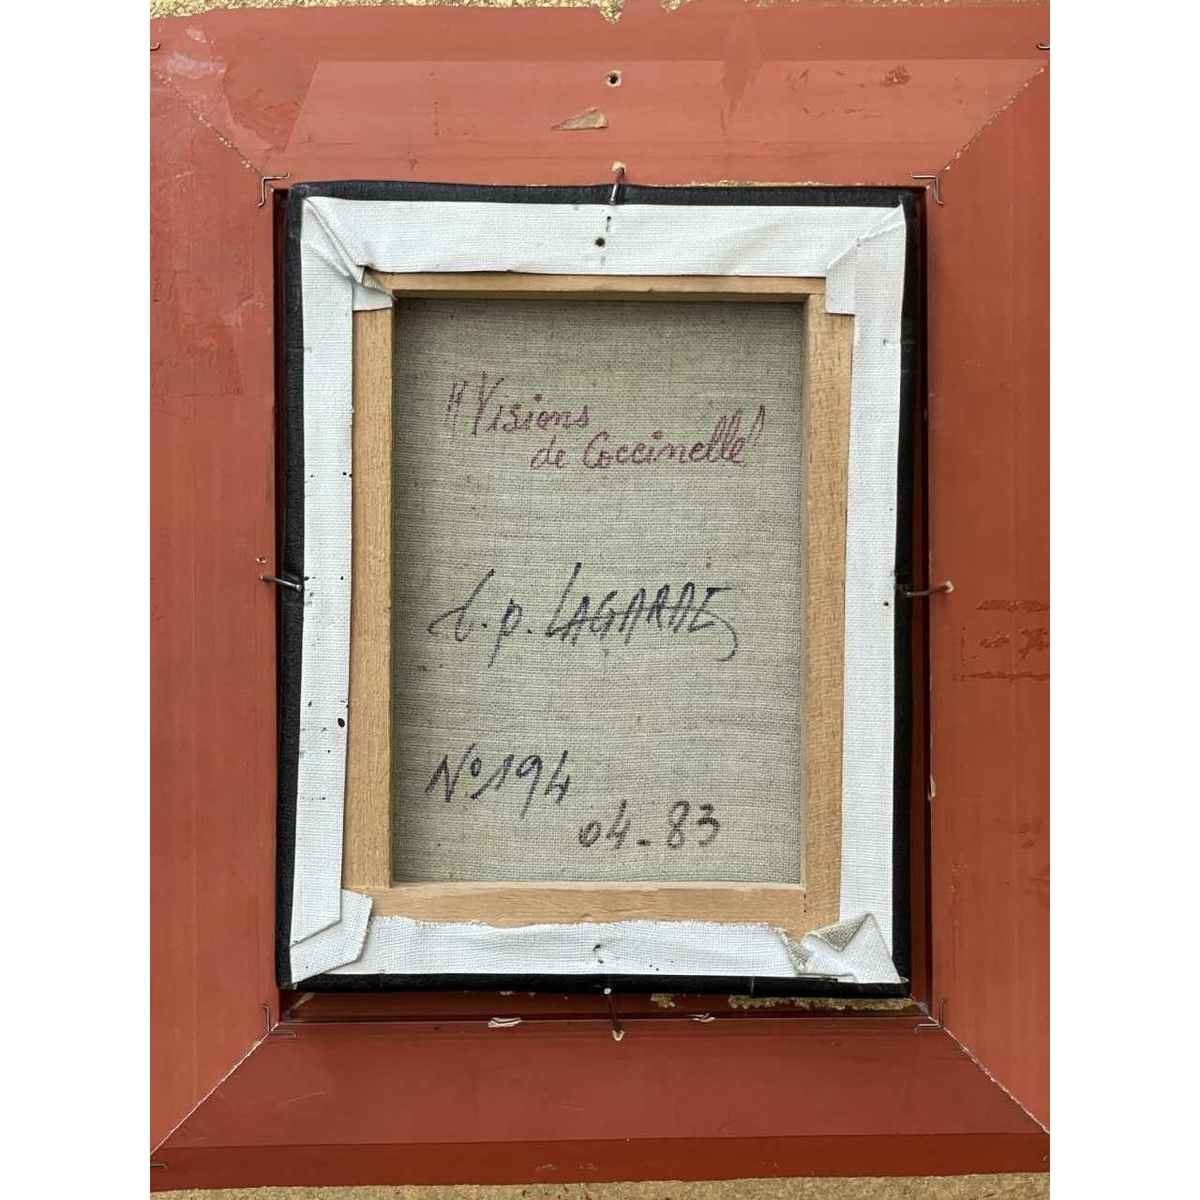 "Visions
de Coccinelle"
L.P. LAGARDE
N° 194
04-83